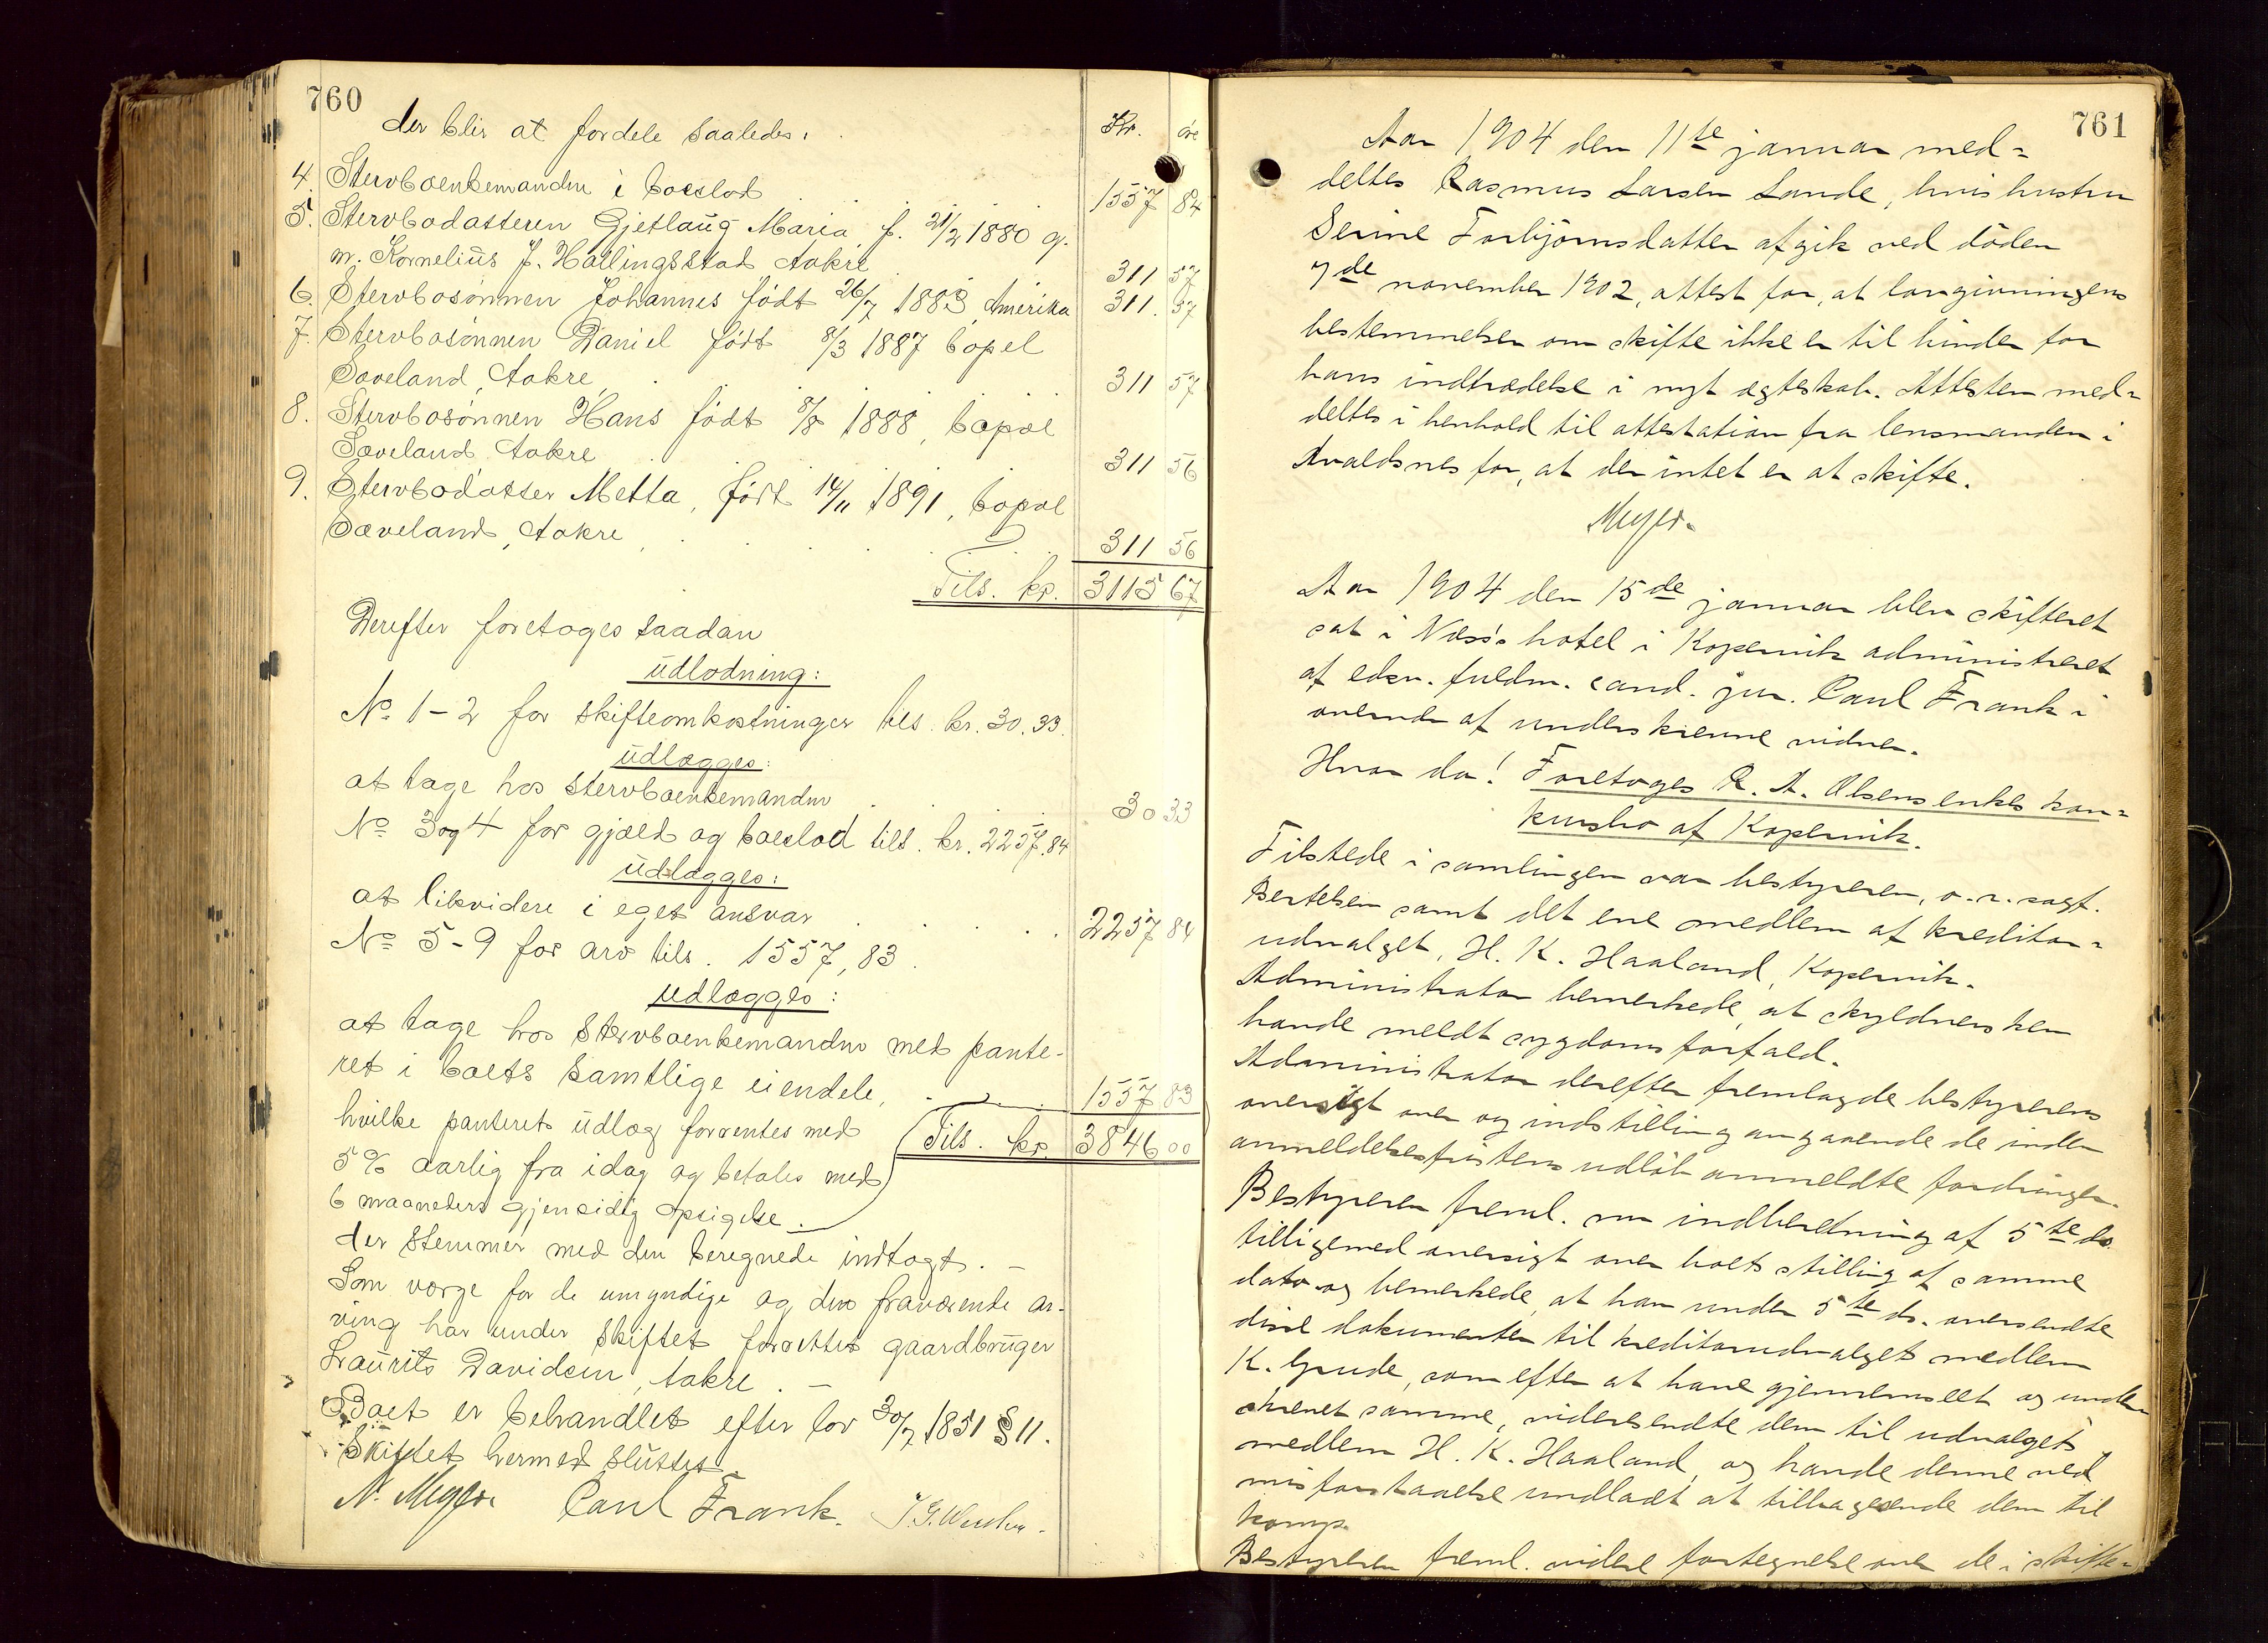 760
der blir at fordele saaledes:
Kr. øre
4. Stervboenkemanden i boeslod 1557 84
5. Stervbodatteren Gjetlaug Maria f. 21/2 1880 g.
m. Kornelius J. Hallingsstad Aakre 311 57
6. Stervbosønnen Johannes født 26/7 1883, Amerika 311.57
7. Stervbosønnen Daniel født 8/3 1887 bopel
Sæveland, Aakre 311 57
8. Stervbosønnen Hans født 8/8 1888, bopæl
Sæveland Aakre 311 56
9. Stervbodatter Metta, født 14/11 1891, bopæl
Sæveland, Aakre 311 56
Tils. kr. 3115 67
Derefter foretoges saadan
udlodning:
No 1-2 for skifteomkostninger tils. kr. 30.33.
udlægges:
at tage hos stervboenkemanden 30 33
No 3 og 4 for gjæld og boeslod tils. kr. 2257.84
udlægges:
at likvidere i eget ansvar 2257 84
No 5-9 for arv tils. 1557,83.
udlægges:
at tage hos stervboenkemanden med pante-
ret i boets samtlige eiendele, 1557 83
hvilke panterets udlæg forrentes med Tils. kr. 3846 00
5% aarlig fra idag og betales med
6 maaneders gjensidig opsigelse.
der stemmer med den beregnede indtægt. -
Som værge for de umyndige og den fraværende ar-
ving har under skiftet forrettet gaardbruger
Laurits Davidsen, Aakre. -
Boet er behandlet efter lov 30/7 1851 § 11.
Skiftet hermed sluttet
N. Meyer. Paul Frank.
761
Aar 1904 den 11te januar med-
deltes Rasmus Larsen Lande, hvis hustru
Serine Torbjörnsdatter afgik ved döden
7de november 1902, attest for, at lovgivningens
bestemmelser om skifte ikke er til hinder for
hans indtrædelse i nyt ægteskab. Attesten med-
deltes i henhold til attestation fra lensmanden i
Avaldsnes for, at der intet er at skifte.
Meyer.
Aar 1904 den 15de januar blev skifteret
sat i Næss's hotel i Kopervik administreret
af edsv. fuldm. cand. jur. Paul Frank i
overvær af underskrevne vidner.
Hvor da! Foretoges R. A. Olsens enkes kon-
kursbo af Kopervik.
Tilstede i samlingen var bestyreren, o.r.sagf.
Bertelsen samt det ene medlem af kreditor-
udvalget, H. K. Haaland, Kopervik.
Administrator bemerkede, at skyldnersken
havde meldt sygdomsforfald.
Administrator derefter fremlagde bestyrerens
oversigt over og indstilling angaaende de inden
anmeldelsesfristens udlöb anmeldte fordringer.
Bestyreren freml. nu indberetning af 5te ds.
tilligemed oversigt over boets stilling af samme
dato og bemerkede, at han under 5te ds. oversendte
disse dokumenter til kreditorudvalgets medlem
K. Grude, som efter at have gjennemseet og under-
skrevet samme, videresendte dem til udvalgets
medlem H. K. Haaland, og havde denne ved
misforstaaelse undladt at tilbagesende dem til
komp.
Bestyreren freml. videre fortegnelse over de i skifte-